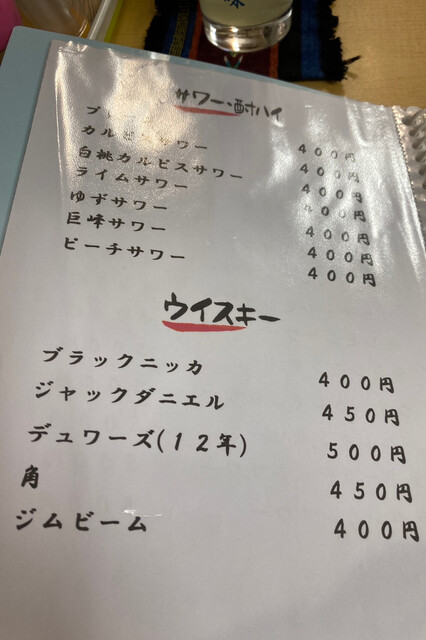 サワー・酎ハイ
400円
カルピスサワー 400円
白桃カルピスサワー 400円
ライムサワー 400円
ゆずサワー 400円
巨峰サワー 400円
ピーチサワー 400円
ウイスキー
ブラックニッカ 400円
ジャックダニエル 450円
デュワーズ(12年) 500円
角 450円
ジムビーム 400円